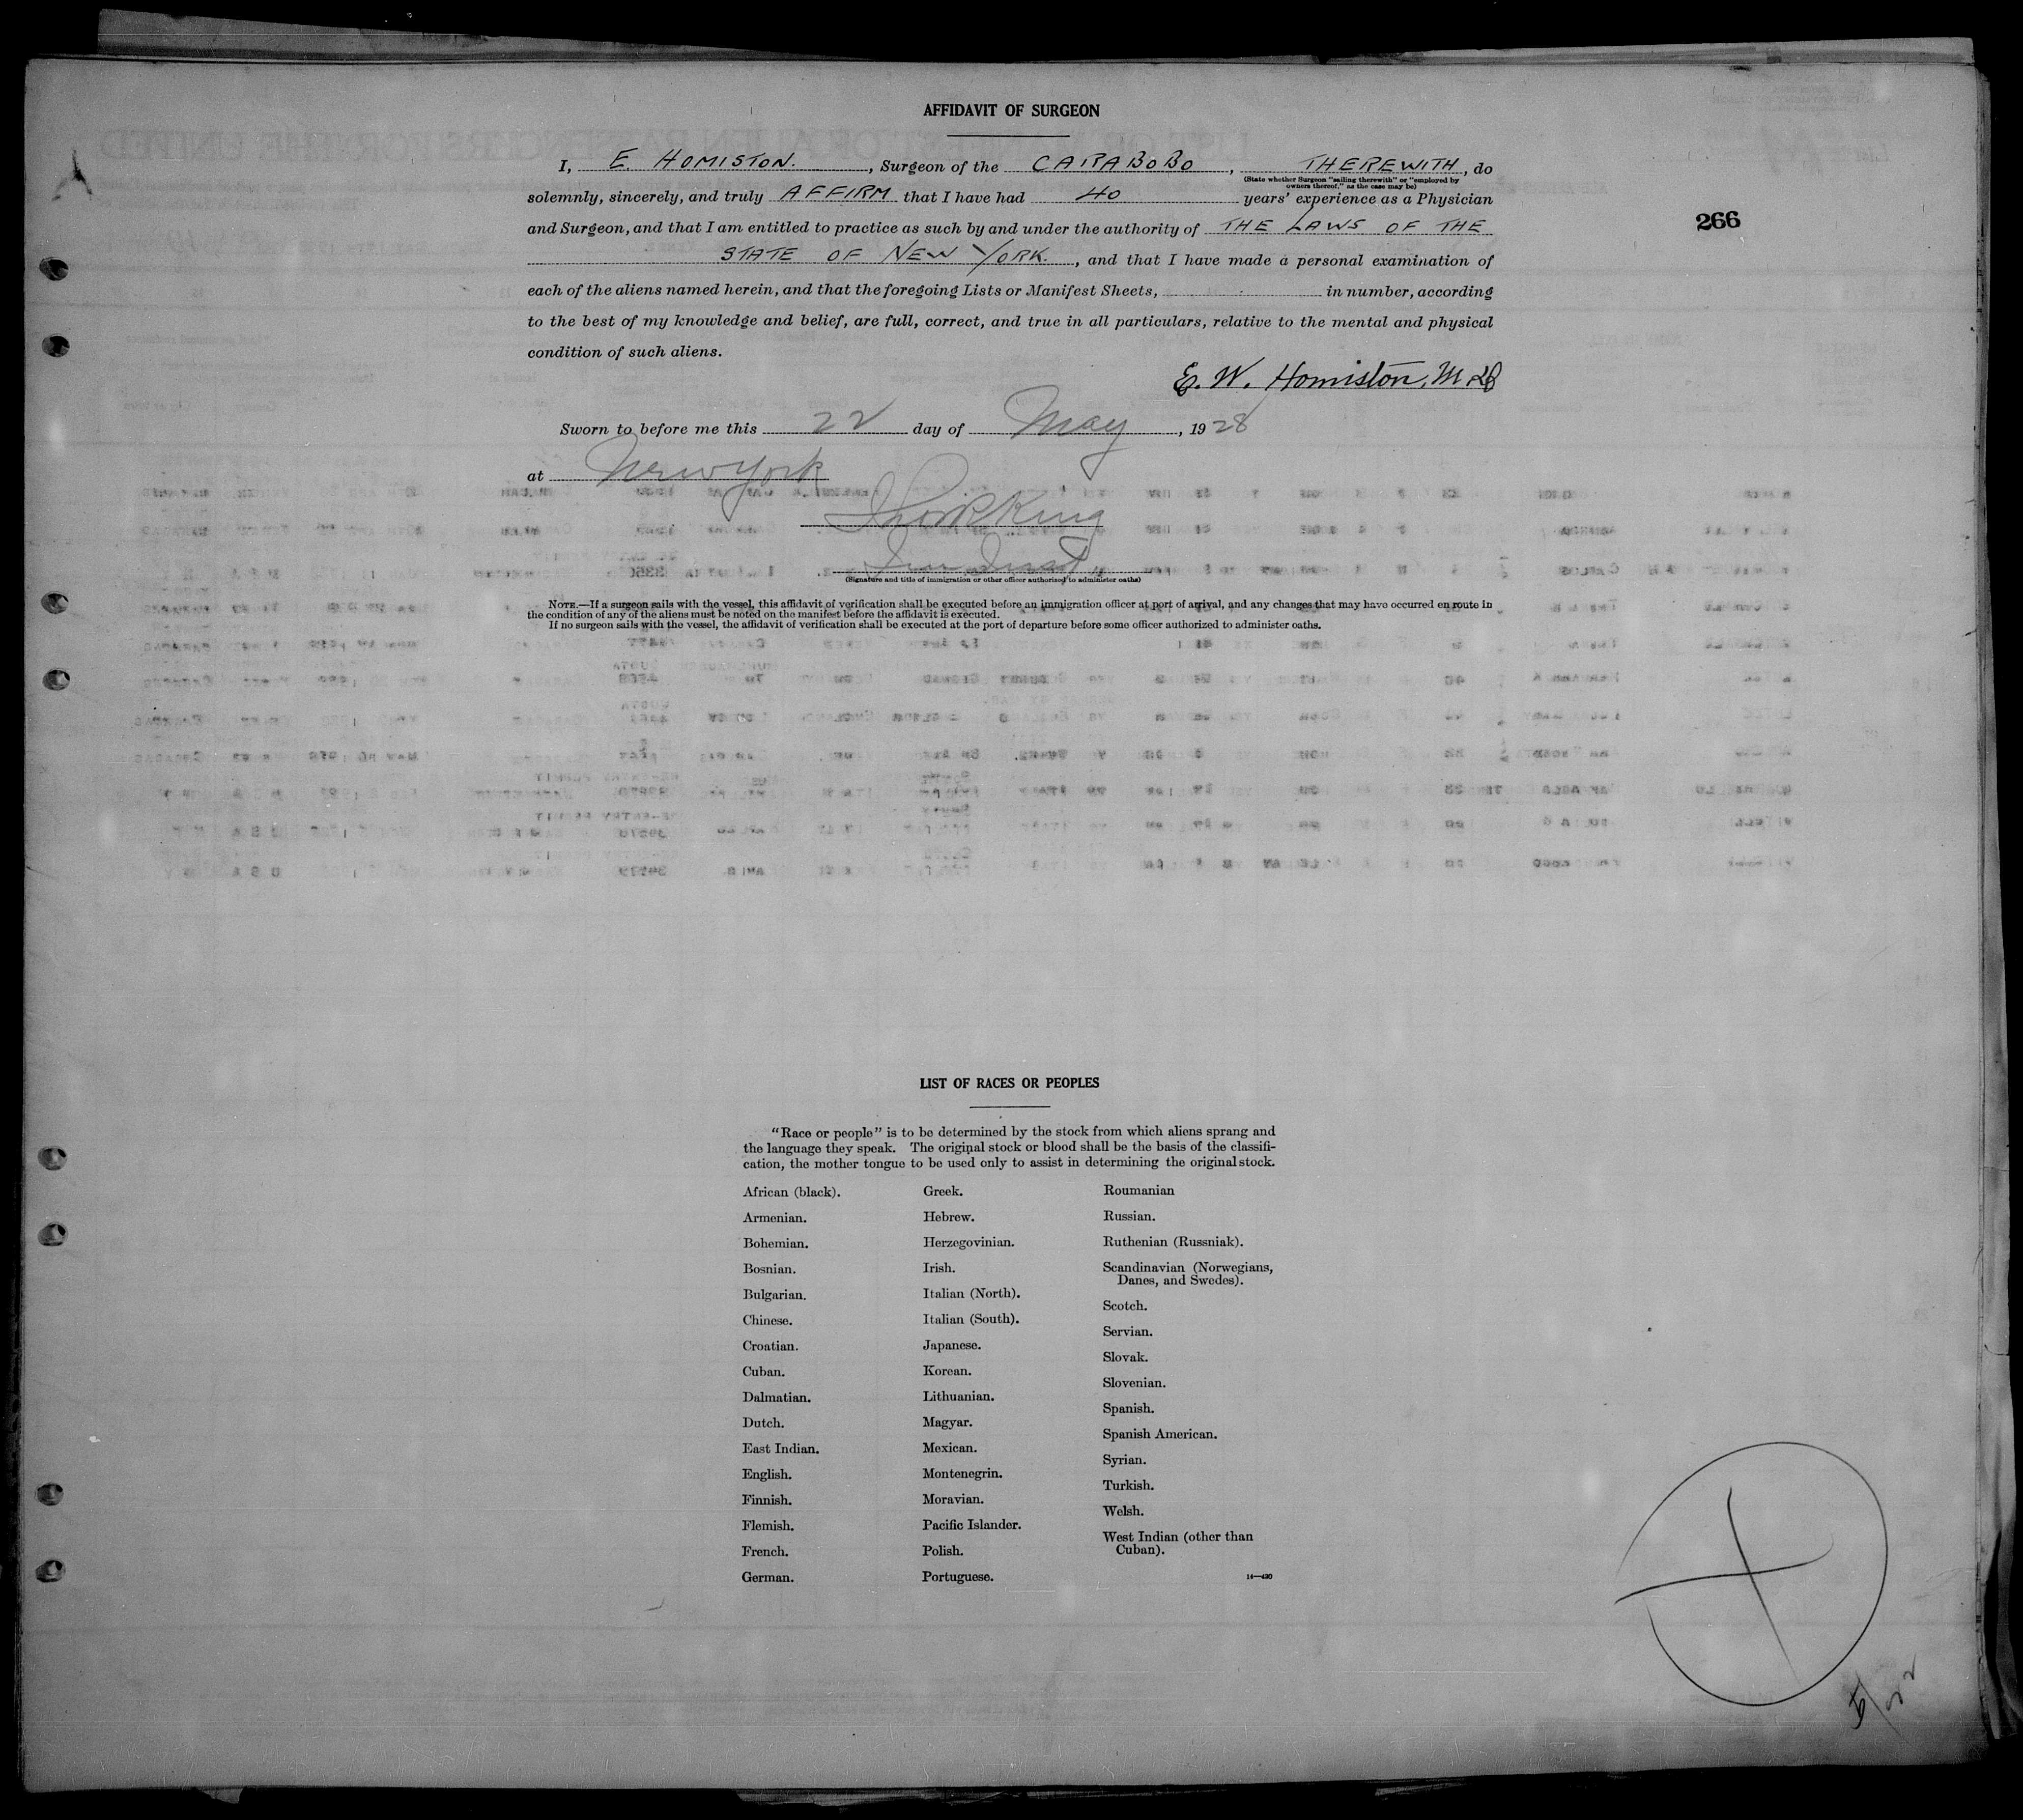 AFFIDAVIT OF SURGEON
I, E. HOMISTON. , Surgeon of the CARABOBO , THEREWITH , do
(State whether Surgeon "sailing therewith" or "employed by
owners thereof," as the case may be)
solemnly, sincerely, and truly AFFIRM that I have had 40 years' experience as a Physician
266
and Surgeon, and that I am entitled to practice as such by and under the authority of THE LAWS OF THE
STATE OF NEW YORK. , and that I have made a personal examination of
each of the aliens named herein, and that the foregoing Lists or Manifest Sheets, in number, according
to the best of my knowledge and belief, are full, correct, and true in all particulars, relative to the mental and physical
condition of such aliens.
E. W. Homiston, M.D.
Sworn to before me this 22 day of May , 19 28
at New York
King
(Signature and title of immigration or other officer authorized to administer oaths)
NOTE.—If a surgeon sails with the vessel, this affidavit of verification shall be executed before an immigration officer at port of arrival, and any changes that may have occurred en route in
the condition of any of the aliens must be noted on the manifest before the affidavit is executed.
If no surgeon sails with the vessel, the affidavit of verification shall be executed at the port of departure before some officer authorized to administer oaths.
LIST OF RACES OR PEOPLES
"Race or people" is to be determined by the stock from which aliens sprang and
the language they speak. The original stock or blood shall be the basis of the classifi-
cation, the mother tongue to be used only to assist in determining the original stock.
African (black).
Armenian.
Bohemian.
Bosnian.
Bulgarian.
Chinese.
Croatian.
Cuban.
Dalmatian.
Dutch.
East Indian.
English.
Finnish.
Flemish.
French.
German.
Greek.
Hebrew.
Herzegovinian.
Irish.
Italian (North).
Italian (South).
Japanese.
Korean.
Lithuanian.
Magyar.
Mexican.
Montenegrin.
Moravian.
Pacific Islander.
Polish.
Portuguese.
Roumanian
Russian.
Ruthenian (Russniak).
Scandinavian (Norwegians,
Danes, and Swedes).
Scotch.
Servian.
Slovak.
Slovenian.
Spanish.
Spanish American.
Syrian.
Turkish.
Welsh.
West Indian (other than
Cuban).
14—420
5/22